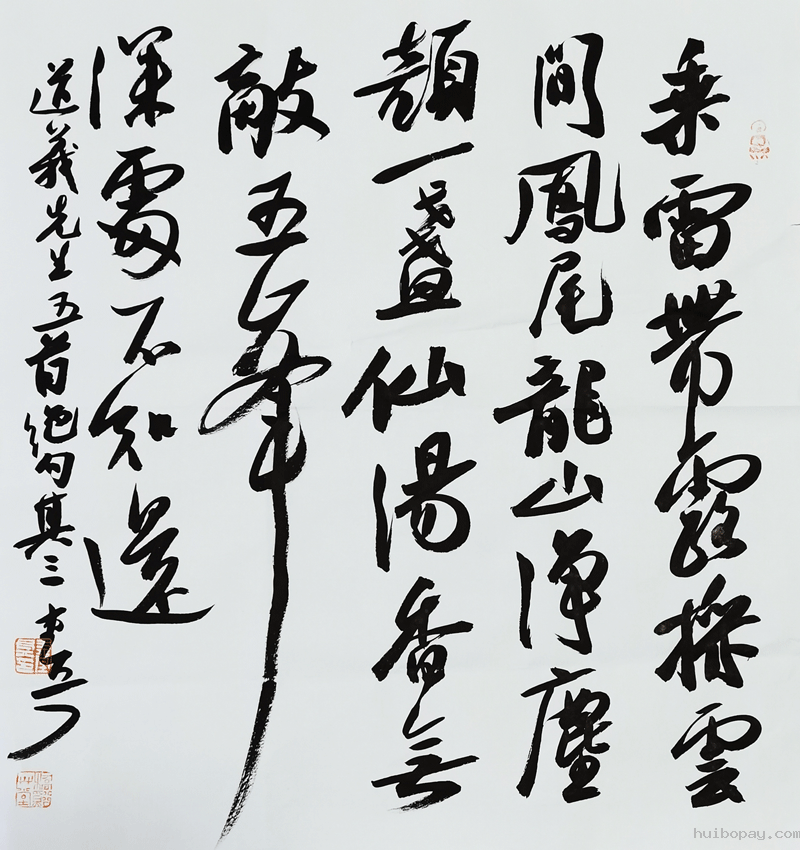 乘雷帶露採雲
間鳳尾龍山淨塵
顏一盞仙湯香無
敵五峯
深處不知還
道義先生五首絕句其三
huibopay.com